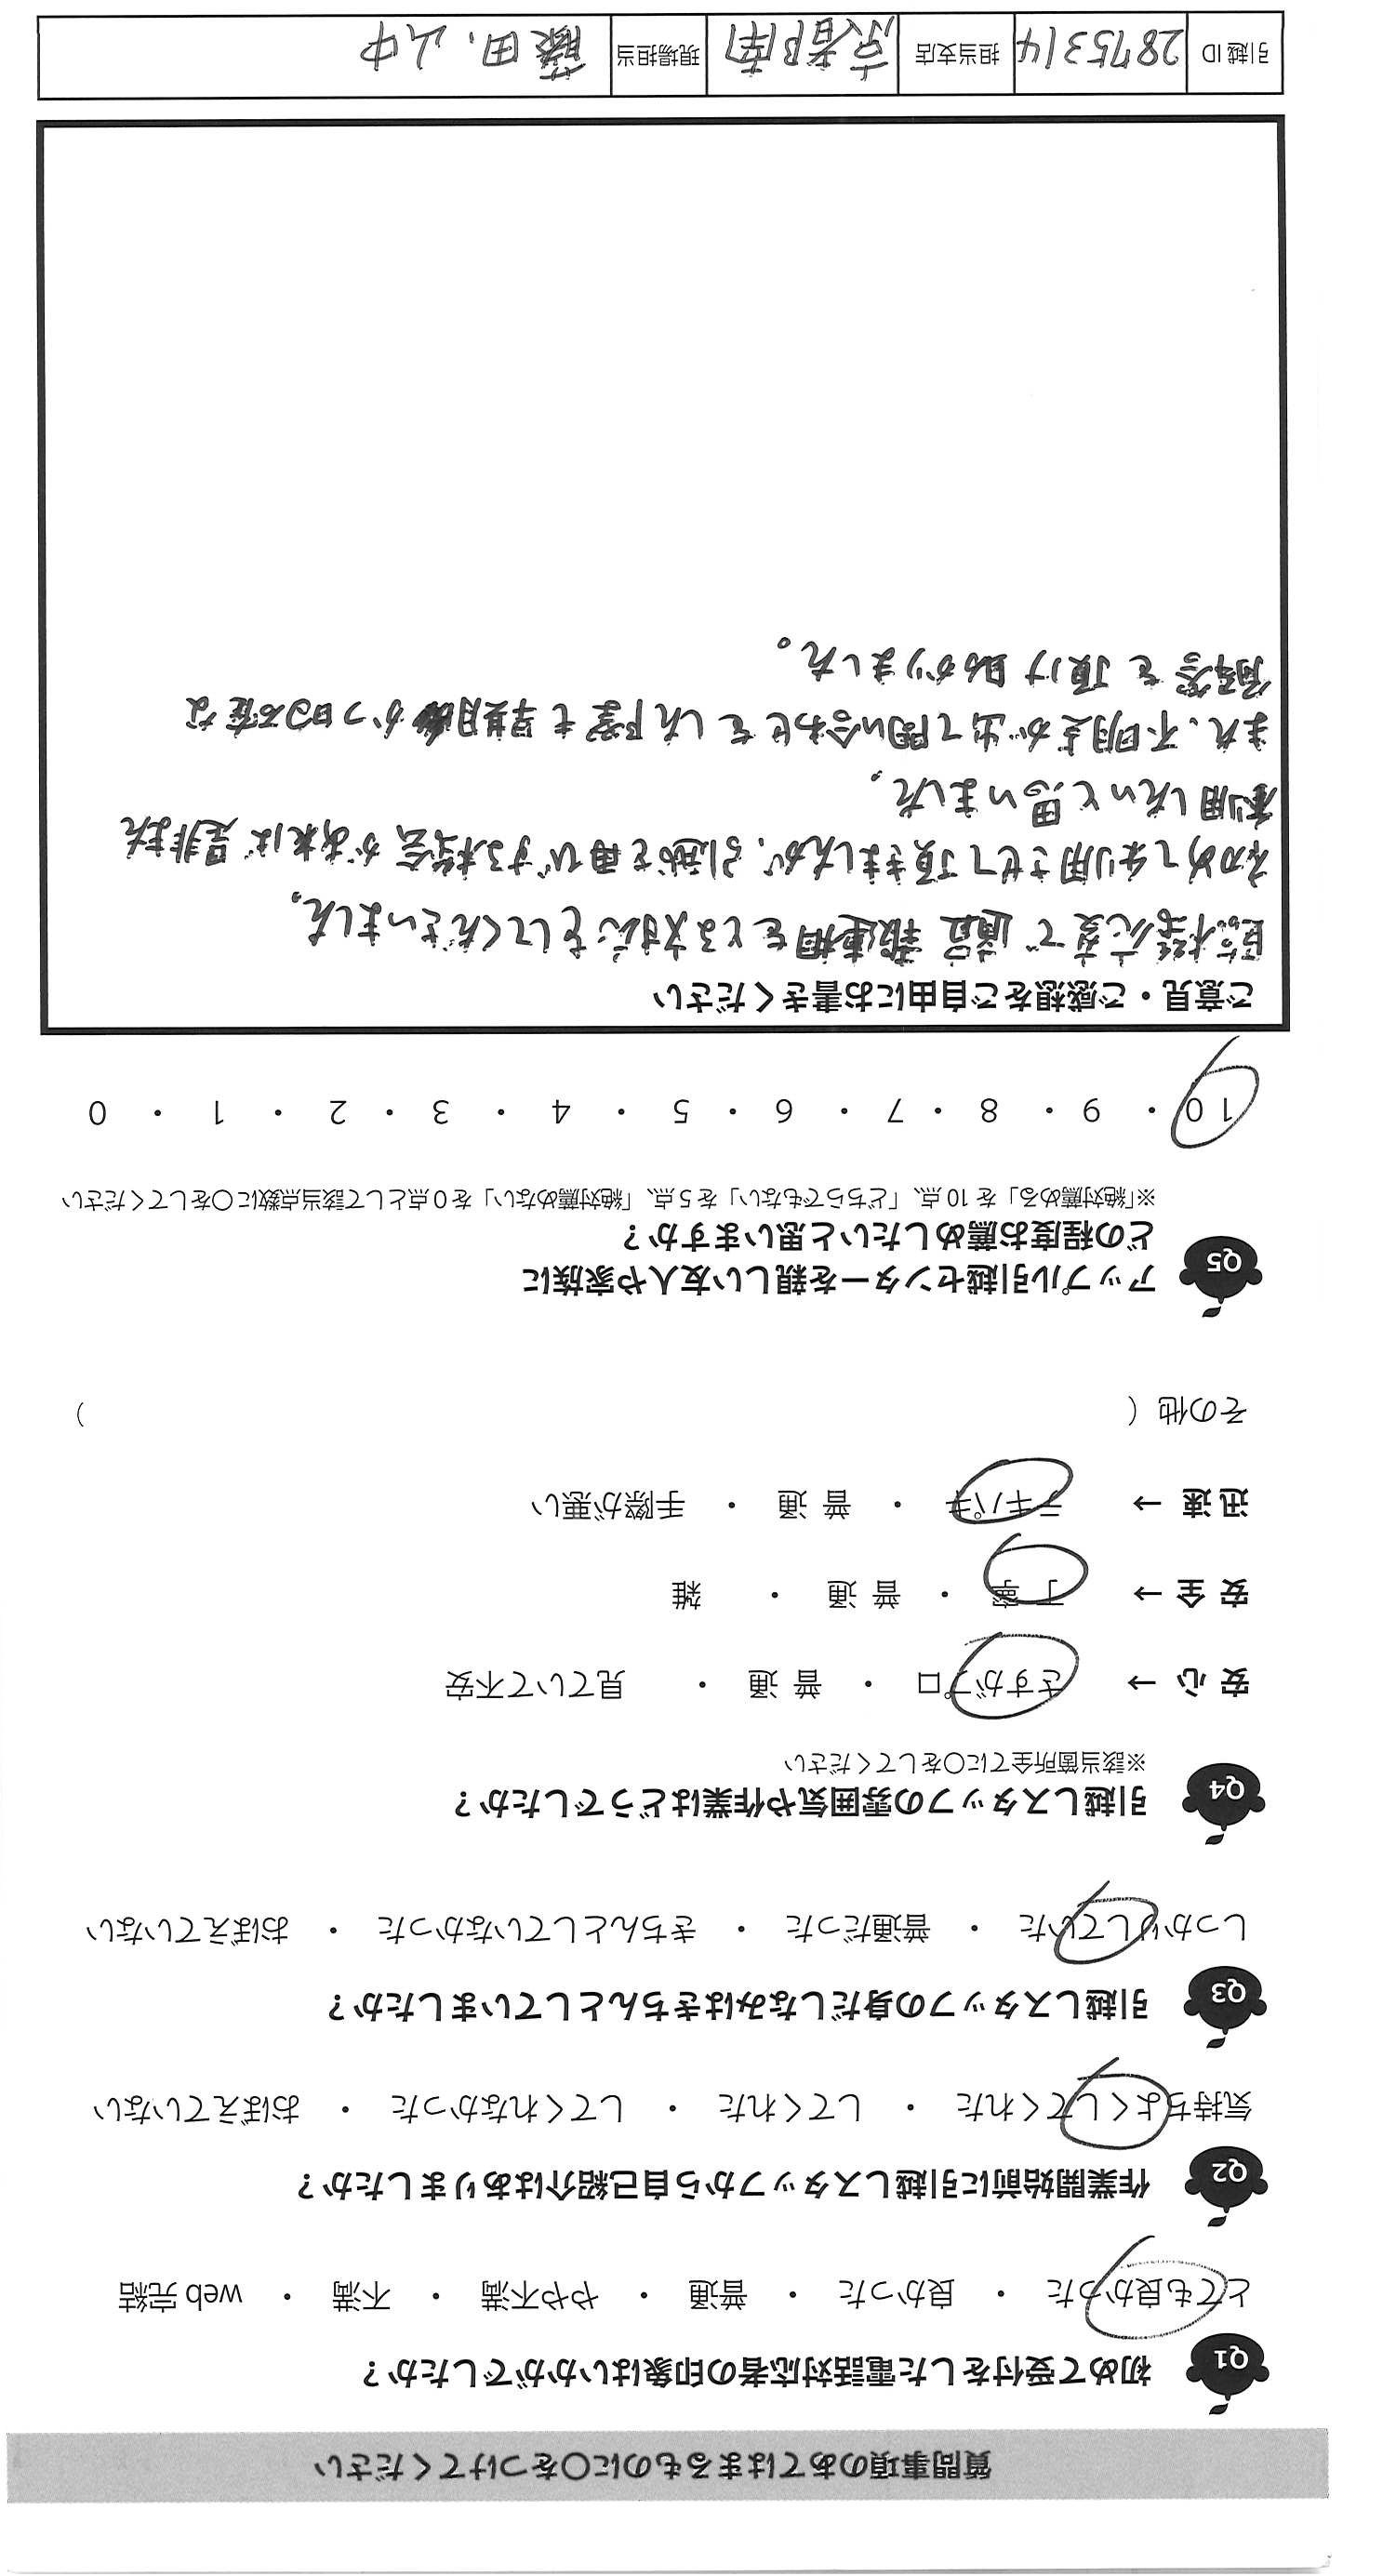 質問事項のあてはまるものに○をつけてください
Q1 初めて受付をした電話対応者の印象はいかがでしたか？
とても良かった ・ 良かった ・ 普通 ・ やや不満 ・ 不満 ・ web 完結
Q2 作業開始前に引越しスタッフから自己紹介はありましたか？
気持ちよくしてくれた ・ してくれた ・ してくれなかった ・ おぼえていない
Q3 引越しスタッフの身だしなみはきちんとしていましたか？
しっかりしていた ・ 普通だった ・ きちんとしていなかった ・ おぼえていない
Q4 引越しスタッフの雰囲気や作業はどうでしたか？
※該当箇所全てに○をしてください
安 心 → さすがプロ ・ 普 通 ・ 見ていて不安
安 全 → 丁 寧 ・ 普 通 ・ 雑
迅 速 → テキパキ ・ 普 通 ・ 手際が悪い
その他（ ）
Q5 アップル引越センターを親しい友人や家族に
どの程度お薦めしたいと思いますか？
※「絶対薦める」を 10 点、「どちらでもない」を 5 点、「絶対薦めない」を 0 点として該当点数に○をしてください
10 ・ 9 ・ 8 ・ 7 ・ 6 ・ 5 ・ 4 ・ 3 ・ 2 ・ 1 ・ 0
ご意見・ご感想をご自由にお書きください
臨機応変で適宜報連相をとる対応をしてくださいました。
初めて利用させて頂きましたが、引越を再びする機会があれば是非また
利用したいと思いました。
また、不明点が出て問い合わせをした際も早期かつ明確な
解答を頂け助かりました。
引越 ID 2875314 担当支店 京都南 現場担当 藤田、山中